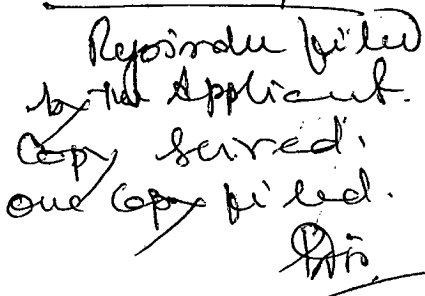 Rejoinder filed
by the Applicant.
Copy served.
one copy filed.